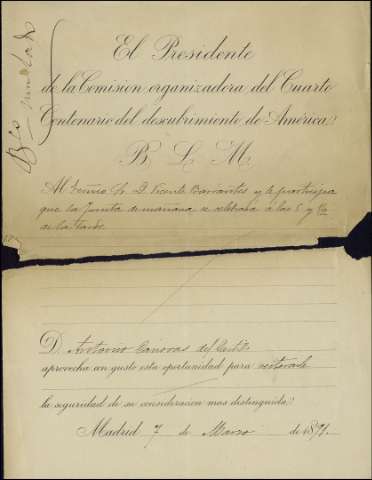 El Presidente
de la Comision organizadora del Cuarto
Centenario del descubrimiento de América
B. L. M.
Al Excmo Sr. D. Vicente Barrantes y le participa
que la Junta de mañana se celebrará a las 5 y
de la tarde.
D. Antonio Cánovas del Castillo
aprovecha con gusto esta oportunidad para reiterarle
la seguridad de su consideracion mas distinguida.
Madrid 7 de Marzo de 1891.